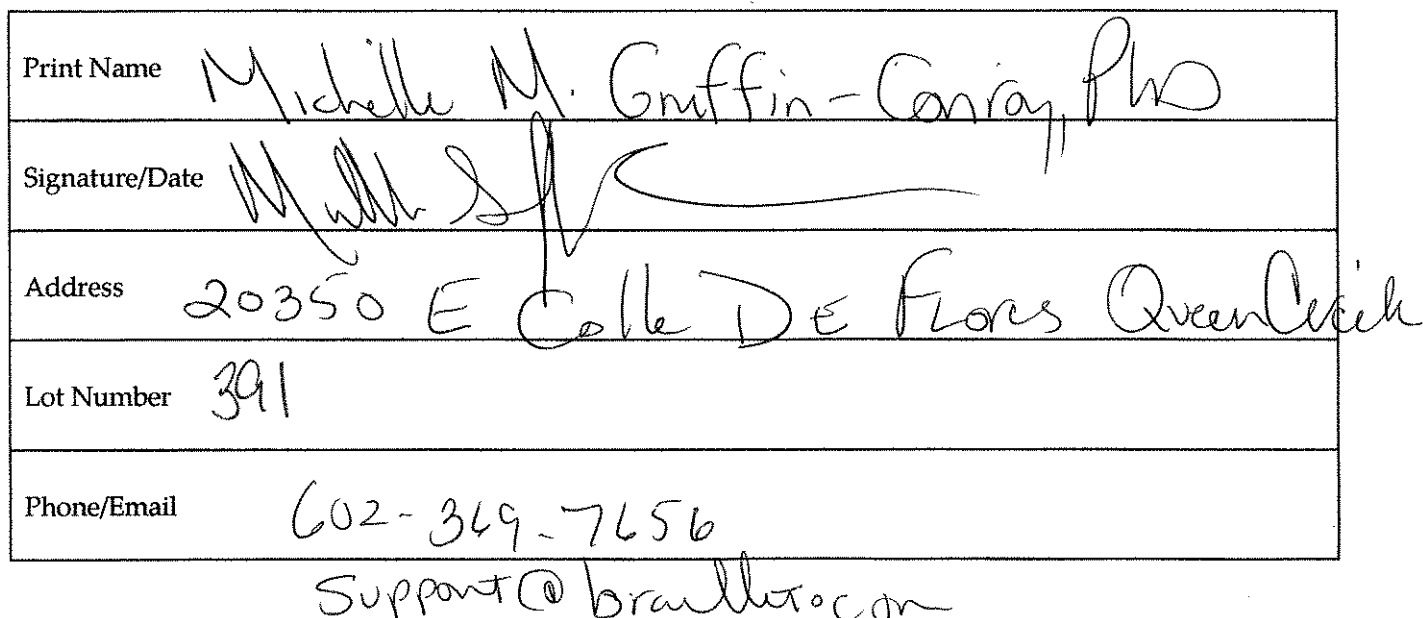 Print Name Michelle M. Griffin-Conroy, PhD
Signature/Date
Address 20350 E Calle DE FLORES Queen Creek
Lot Number 391
Phone/Email 602-369-7656